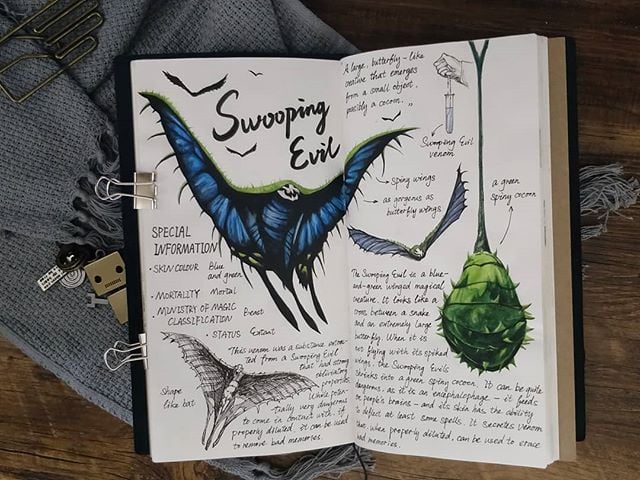 Swooping
Evil
SPECIAL
INFORMATION
• SKIN COLOUR Blue
and green
• MORTALITY Mortal
• MINISTRY OF MAGIC
CLASSIFICATION Beast
• STATUS Extant
This venom was a substance extrac-
ted from a Swooping Evil
that had strong
obliviating
properties.
While poten-
tially very dangerous
to come in contact with, if
properly diluted, it can be used
to remove bad memories.
Shape
like bat
A large, butterfly-like
creature that emerges
from a small object,
possibly a cocoon. "
Swooping Evil
venom
spiny wings
as gorgenus as
butterfly wings
a green
spiny cocoon
The Swooping Evil is a blue-
and-green winged magical
creature. It looks like a
cross between a snake
and an extremely large
butterfly. When it is
not flying with its spiked
wings, the Swooping Evils
shrinks into a green spiny cocoon. It can be quite
dangerous, as it is an encephalophage - it feeds
on people's brains - and its skin has the ability
to deflect at least some spells. It secretes venom
that, when properly diluted, can be used to erase
bad memories.